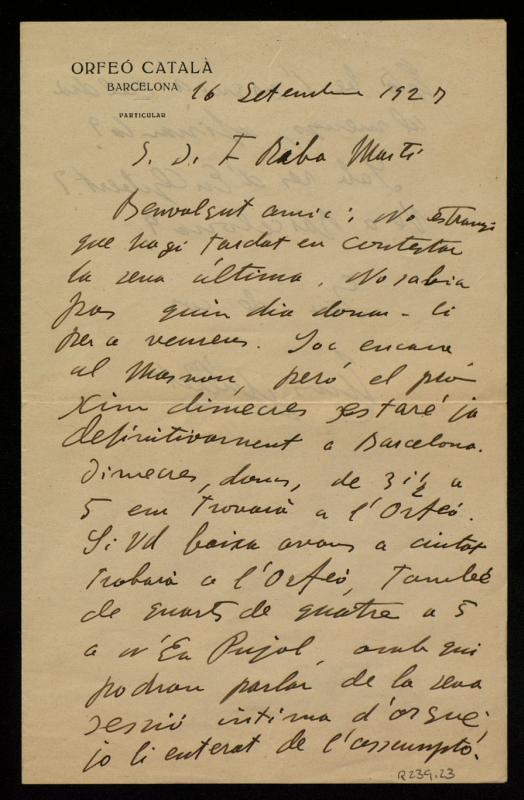 ORFEÓ CATALÀ
BARCELONA
PARTICULAR
16 Setembre 1927
S. D. F. Raba Martí
Benvolgut amic: No estranyi
que hagi tardat en contestar
la seva última. No sabia
pas quin dia donar-li
per a veurens. Soc encara
al Masnou, però el prò
xim dimecres estaré ja
definitivament a Barcelona.
Dimecres, dons, de 3 i ½ a
5 em trovarà a l'Orfeó.
Si Vd baixa avans a ciutat
trobarà a l'Orfeó, també
de quarts de quatre a 5
a n'En Pujol, amb qui
podran parlar de la seva
sessió intima d'orgue.
jo li enterat de l'assumpto.
R239.23